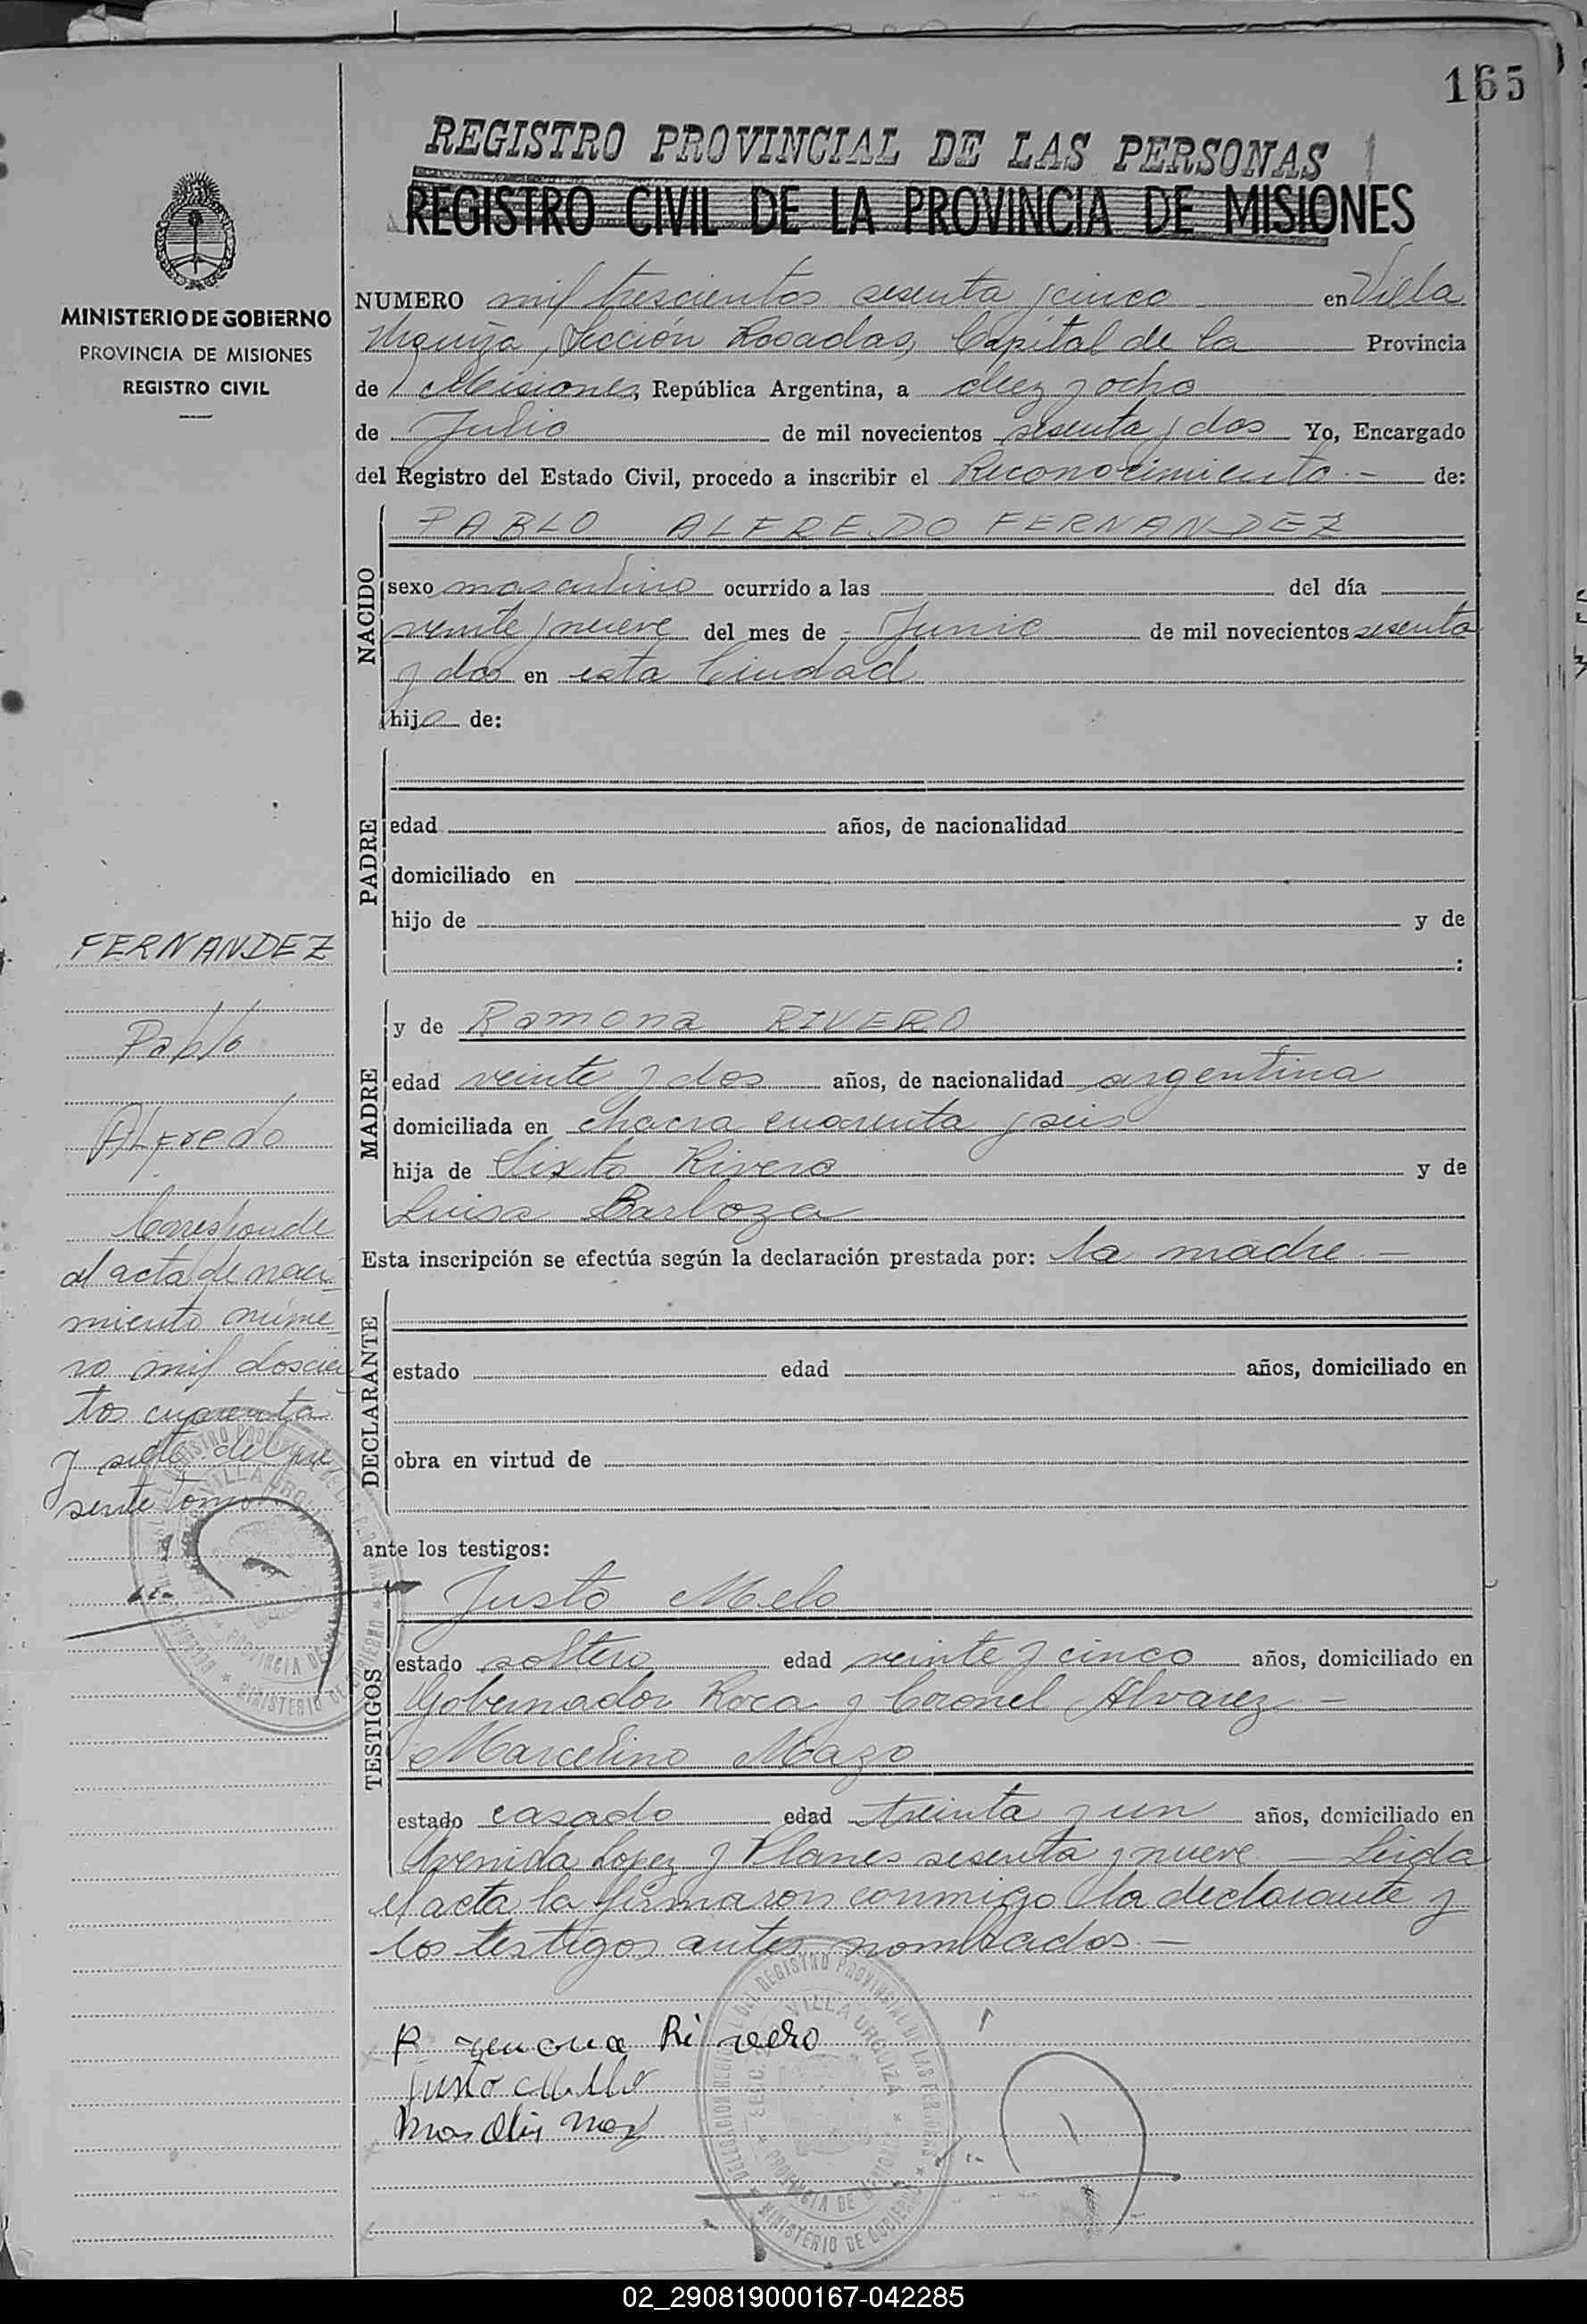 165
REGISTRO PROVINCIAL DE LAS PERSONAS
REGISTRO CIVIL DE LA PROVINCIA DE MISIONES
MINISTERIO DE GOBIERNO
PROVINCIA DE MISIONES
REGISTRO CIVIL
NUMERO mil trescientos sesenta y cinco en Villa
Urquiza, Sección Rosadas, Capital de la Provincia
de Misiones, República Argentina, a diez y ocho
de Julio de mil novecientos sesenta y dos Yo, Encargado
del Registro del Estado Civil, procedo a inscribir el Reconocimiento.- de:
NACIDO
PABLO ALFREDO FERNANDEZ
sexo masculino ocurrido a las del día
veinte y nueve del mes de Junio de mil novecientos sesenta
y dos en esta Ciudad
hijo de:
PADRE
edad años, de nacionalidad
domiciliado en
hijo de y de
:
MADRE
y de Ramona RIVERO
edad veinte y dos años, de nacionalidad argentina
domiciliada en chacra cuarenta y seis
hija de Sixto Rivero y de
Luisa Barboza
Esta inscripción se efectúa según la declaración prestada por: la madre.-
DECLARANTE
estado edad años, domiciliado en
obra en virtud de
ante los testigos:
TESTIGOS
Justo Melo
estado soltero edad veinte y cinco años, domiciliado en
Gobernador Roca y Coronel Alvarez -
Marcelino Mazo
estado casado edad treinta y un años, domiciliado en
Avenida Lopez y Planes sesenta y nueve - Leida
el acta la firmaron conmigo la declarante y
los testigos antes nombrados.-
Ramona Rivero
Justo Melo
FERNANDEZ
Pablo
Alfredo
Corresponde
al acta de naci-
miento núme-
ro mil doscien
tos cuarenta
y siete del pre
sente tomo
DELEGACION DEL REGISTRO PROVINCIAL DE LAS PERSONAS
VILLA URQUIZA
PROVINCIA DE MISIONES
MINISTERIO DE GOBIERNO
02_290819000167-042285